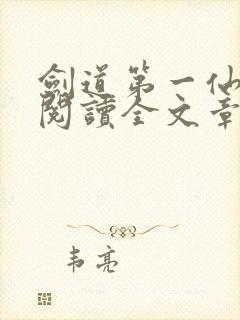 劍道第一仙
閱讀全文章
韦亮